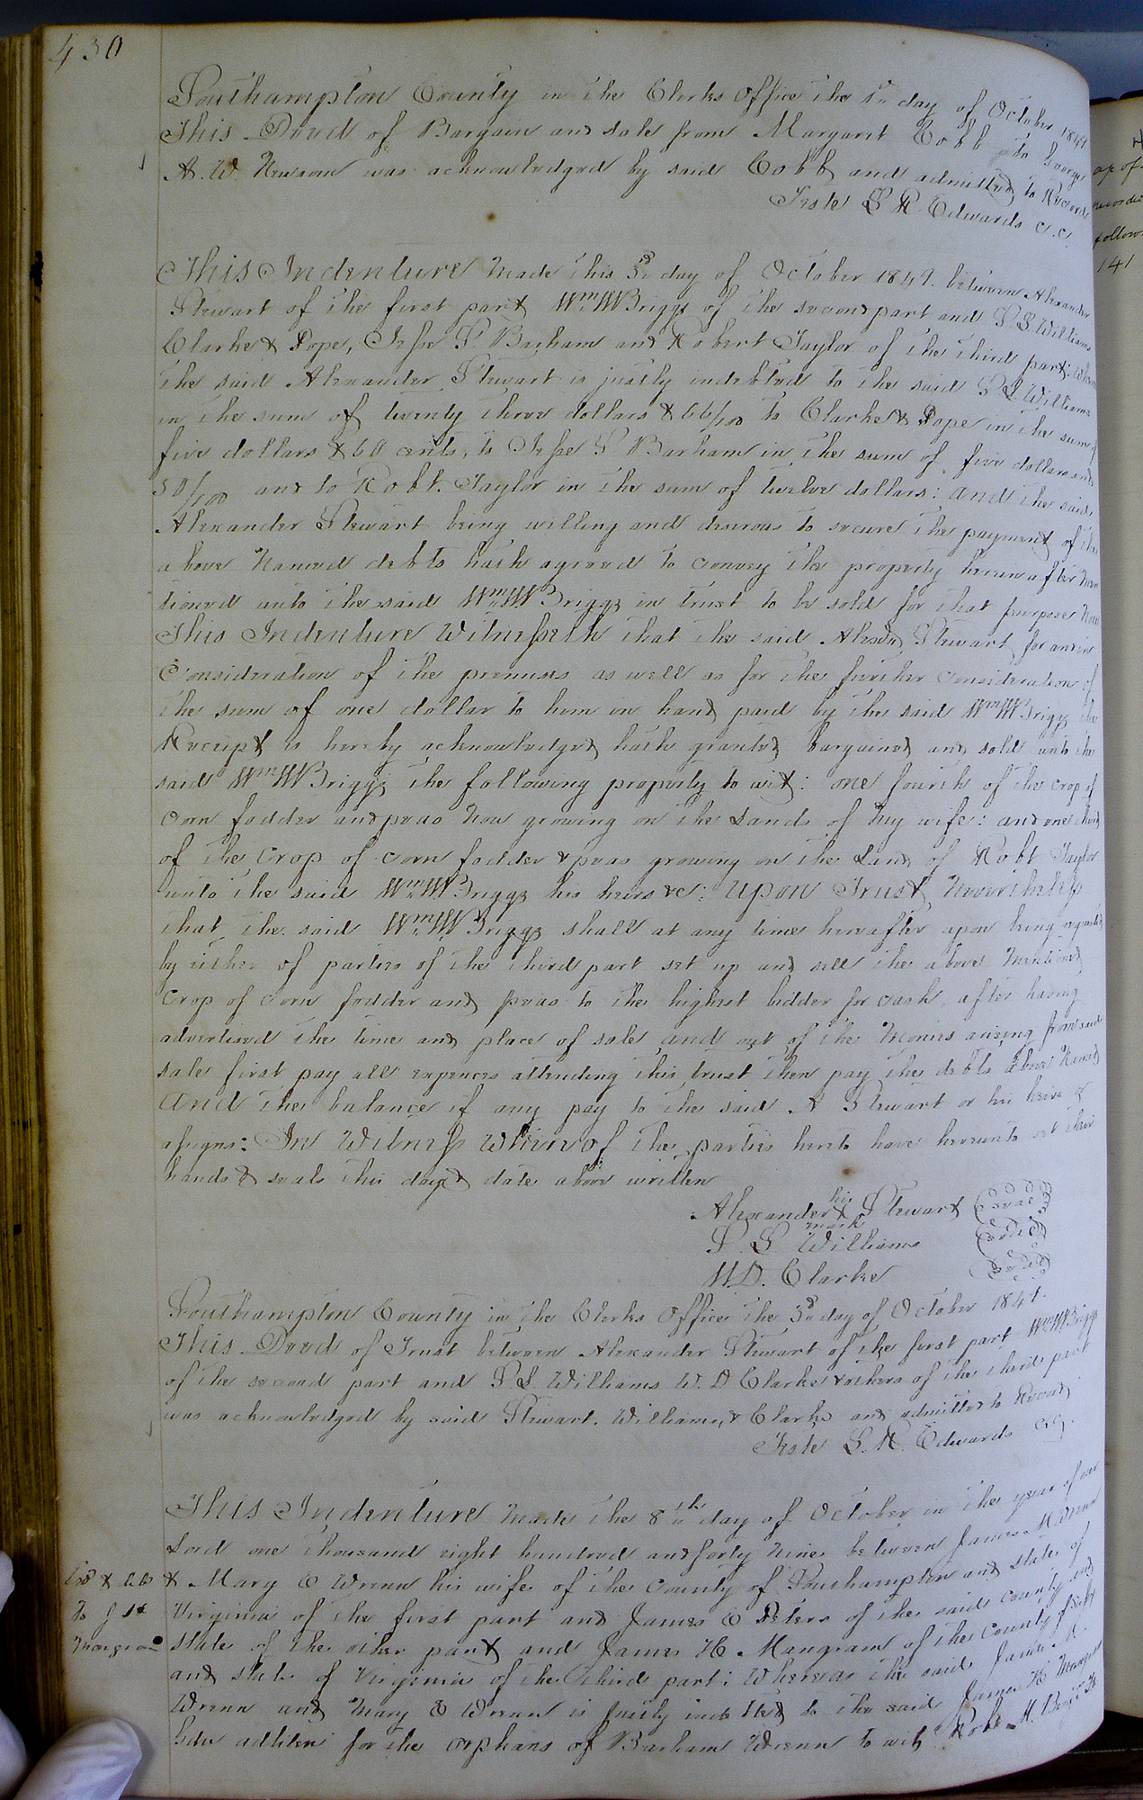 430
Southampton County in the Clerks Office the 1st day of October 1849
This Deed of Bargain and sale from Margaret Cobb to George
A. W. Newsom was acknowledged by said Cobb and admitted to Record
Teste L R. Edwards c.c.
This Indenture Made this 3d day of October 1849. between Alexander
Stewart of the first part Wm W Briggs of the second part and S. L Williams
Clarke & Pope, Jesse S Barham and Robert Taylor of the third part: Whereas
the said Alexander Stewart is justly indebted to the said S L Williams
in the sum of twenty three dollars & 66/100 to Clarke & Pope in the sum of
five dollars & 60 cents, to Jesse S Barham in the sum of five dollars and
50/100 and to Robt. Taylor in the sum of twelve dollars: and the said
Alexander Stewart being willing and desirous to secure the payment of the
above Named debts hath agreed to convey the property herein after men
tioned unto the said Wm W Briggs in trust to be sold for that purpose Now
This Indenture Witnesseth that the said Alexdr Stewart for and in
Consideration of the premises as well as for the further consideration of
the sum of one dollar to him in hand paid by the said Wm W Briggs the
Receipt is hereby acknowledged hath granted bargained and sold unto the
said Wm W Briggs the following property to wit: one fourth of the crop of
corn fodder and peas Now growing on the Lands of My wife: and one third
of the Crop of corn fodder & peas growing on the Land of Robt Taylor
unto the said Wm W Briggs his heirs &c: Upon Trust Nevertheless
that the said Wm W Briggs shall at any time hereafter upon being requested
by either of parties of the third part set up and sell the above Mentioned
Crop of corn fodder and peas to the highest bidder for cash after having
advertised the time and place of sale and out of the Monies arising from said
sale first pay all expences attending this trust then pay the debts above Named
And the balance if any pay to the said A Stewart or his heirs &
assigns: In Witness Whereof the parties hereto have hereunto set their
hands & seals this day & date above written
his
Alexander X Stewart (Seal)
mark
S. L Williams (Seal)
W. D. Clarke (Seal)
Southampton County in the Clerks Office the 3d day of October 1849.
This Deed of Trust between Alexander Stewart of the first part Wm W Briggs
of the second part and S L Williams W. D Clarke & others of the third part
was acknowledged by said Stewart. Williams, & Clarke and admitted to Record
Teste L. R. Edwards c.c.
This Indenture Made the 8th day of October in the year of our
Lord one thousand eight hundred and forty Nine between James M. Wrenn
& Mary E Wrenn his wife of the County of Southampton and state of
Virginia of the first part and James E Peters of the said county and
state of the other part and James H. Mangram of the County of
and state of Virginia of the third part: Whereas the said James M.
Wrenn and Mary E Wrenn is justly indebted to the said James H. Mangram
Gdn adlitem for the orphans of Barham Wrenn to wit Robt M.
To J H